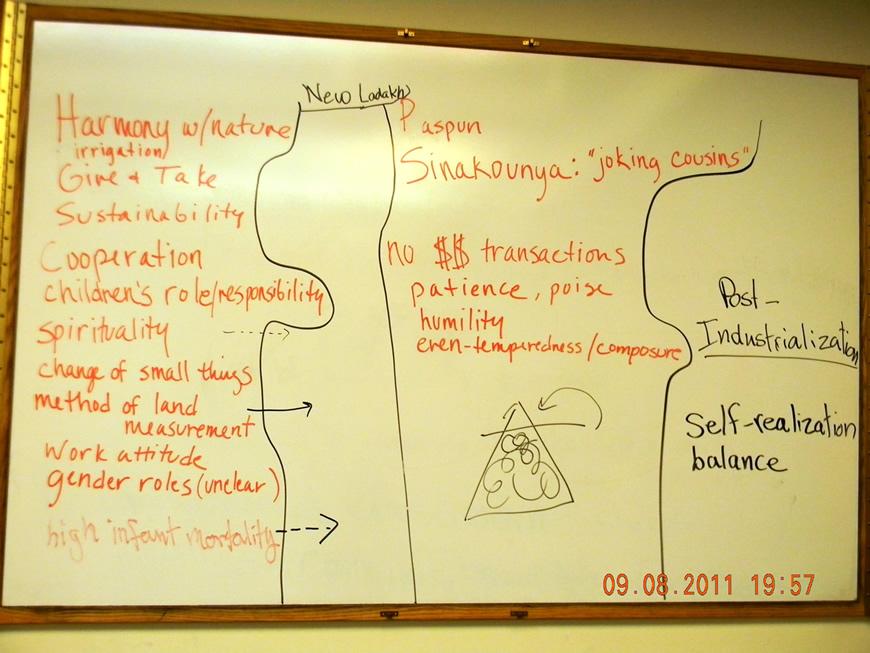 New Ladakh
Harmony w/nature
irrigation
Give & Take
Sustainability
Cooperation
children's role/responsibility
spirituality
change of small things
method of land
measurement
Work attitude
gender roles (unclear)
high infant mortality
Paspun
Sinakounya: "joking cousins"
no $$ transactions
patience, poise
humility
even-temperedness/composure
Post-
Industrialization
Self-realization
balance
09.08.2011 19:57